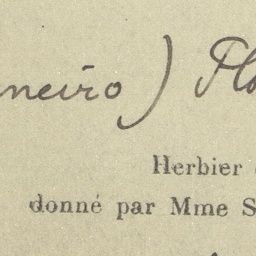 neiro) Flo
Herbier
donné par Mme S